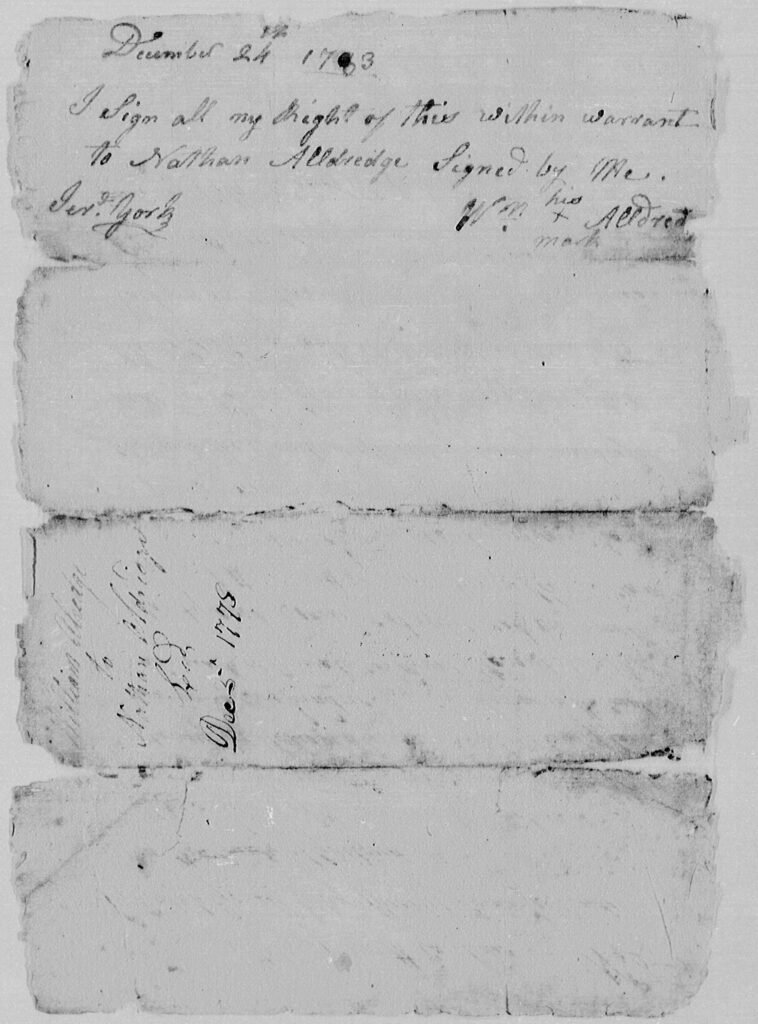 December 24th 1783
I Sign all my Right of this within warrant
to Nathan Alldredge Signed by Me.
Jerd. York Wm. his x mark Alldred
William
to
Nathan
Decr 1778